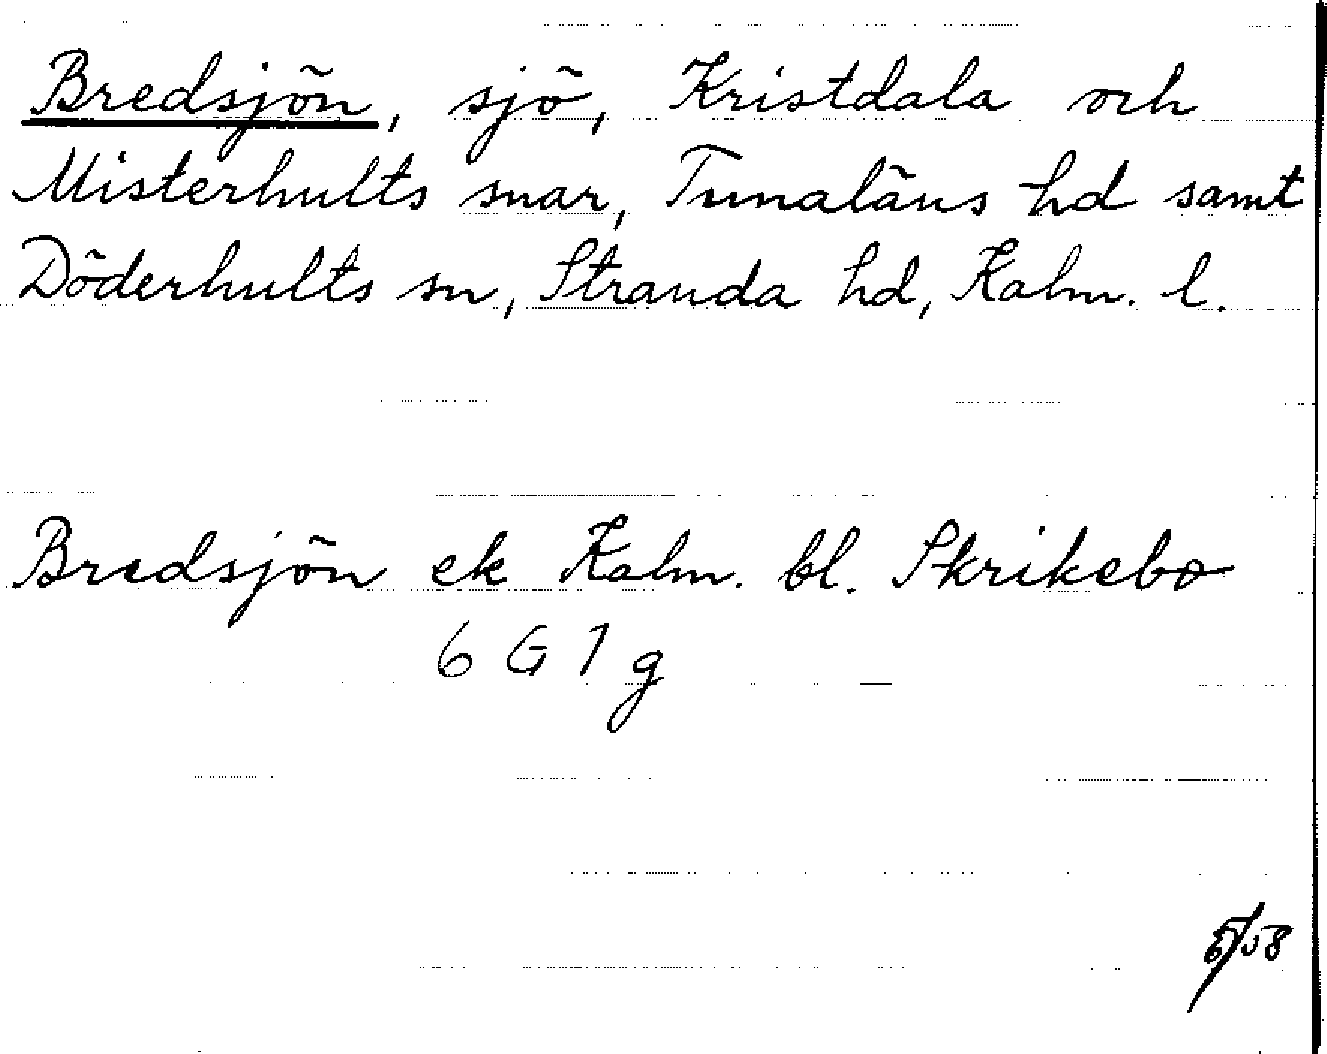 Bredsjön, sjö, Kristdala och
Misterhults snar, Tunaläns hd samt
Döderhults sn, Stranda hd, Kalm. l.
Bredsjön ek Kalm. bl. Skrikebo
6 G 1 g